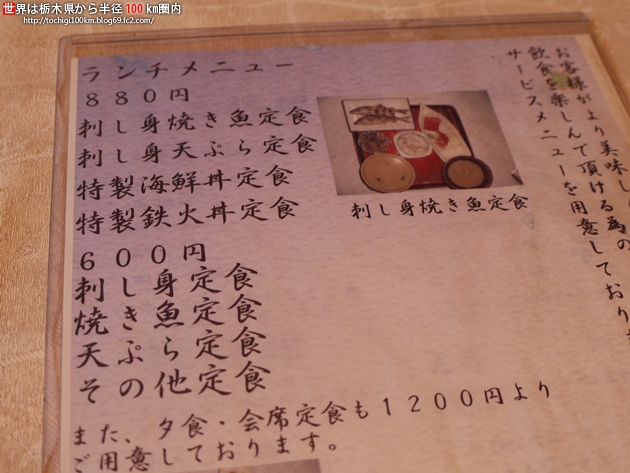 世界は栃木県から半径100km圏内
http://tochigi100km.blog69.fc2.com/
ランチメニュー
880円
刺し身焼き魚定食
刺し身天ぷら定食
特製海鮮丼定食
特製鉄火丼定食
600円
刺し身定食
焼き魚定食
天ぷら定食
その他定食
また、夕食・会席定食も1200円より
ご用意しております。
刺し身焼き魚定食
お客様がより美味し
飲食を楽しんで頂ける為の
サービスメニューを用意しており